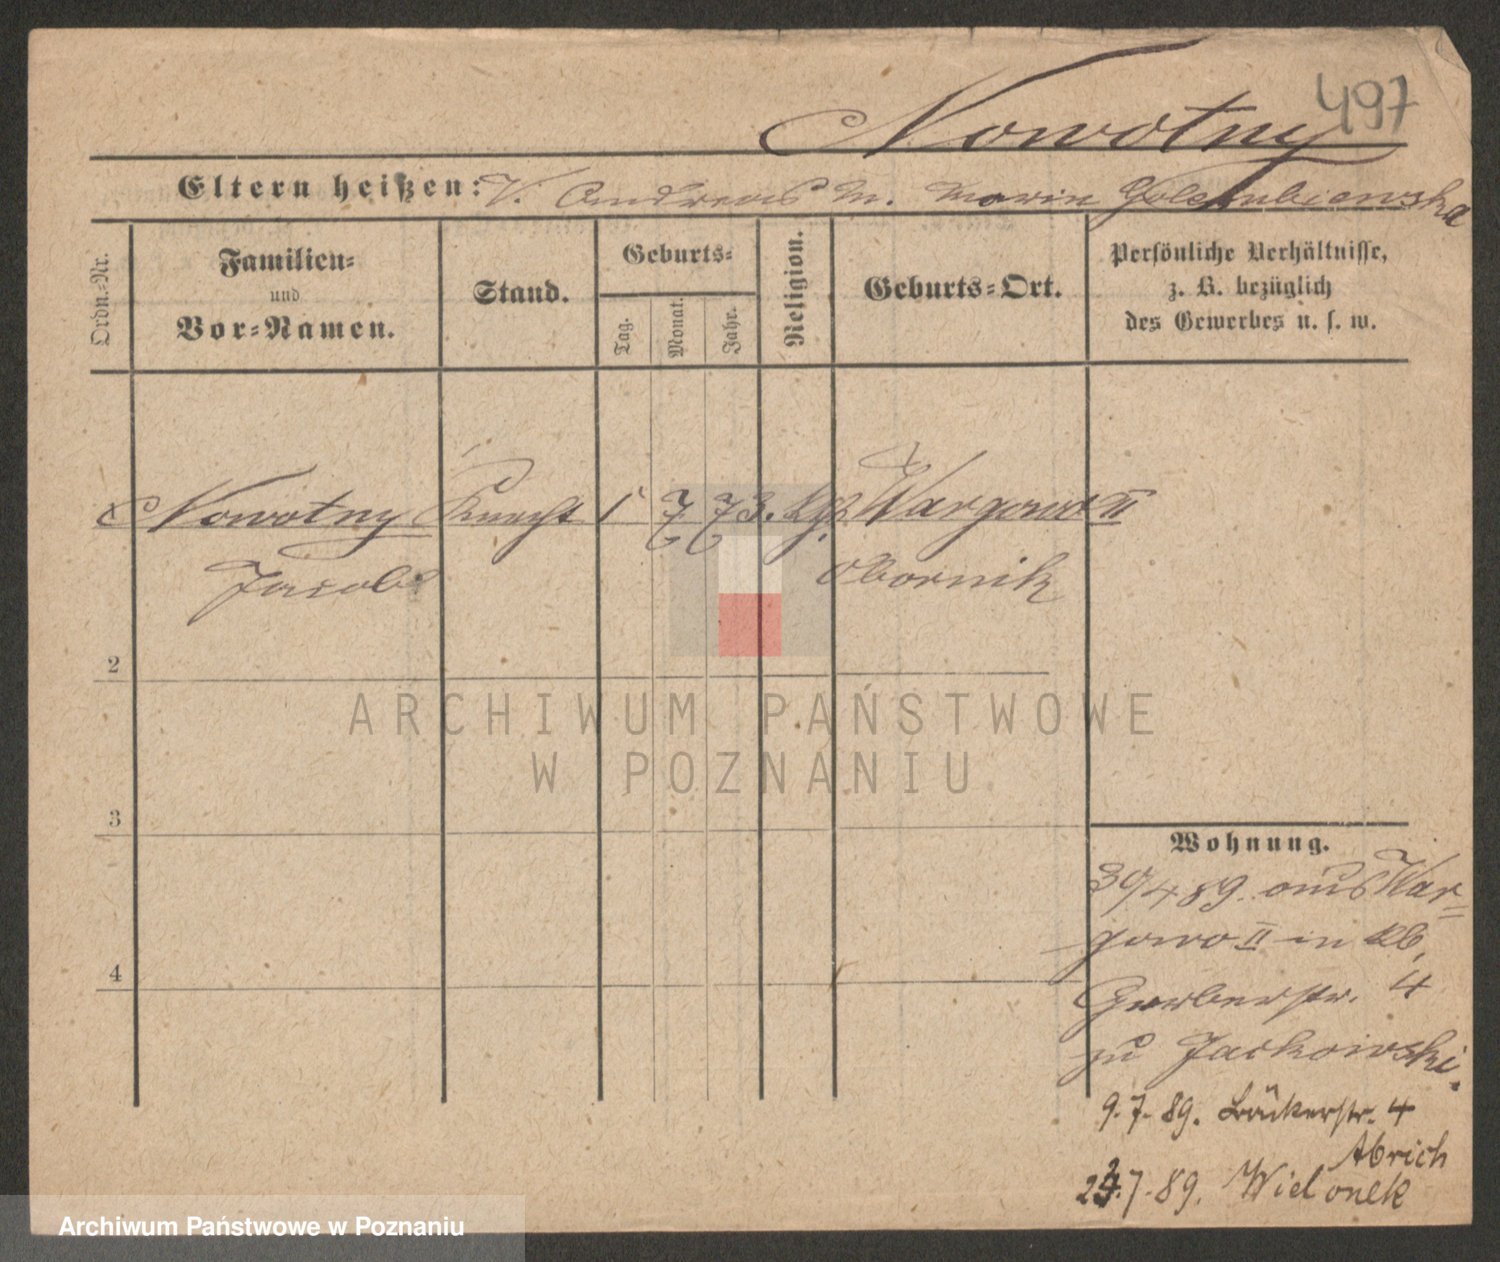 497
Nowotny
Eltern heißen: V. Andreas M. Maria
Ordn.-Nr.
Familien-
und
Vor-Namen.
Stand.
Geburts-
Tag.
Monat.
Jahr.
Religion.
Geburts-Ort.
Persönliche Verhältnisse,
z. B. bezüglich
des Gewerbes u. s. w.
1 Nowotny Knecht 1 7 73. Wargowo II
Jacob Obornik
2
3
4
Wohnung.
30/4 89. aus War=
gowo II in
Gerberstr. 4
zu Jackowski.
9.7.89. Bäckerstr. 4
Abrich
7.89. Wielonek
ARCHIWUM PAŃSTWOWE
W POZNANIU
Archiwum Państwowe w Poznaniu